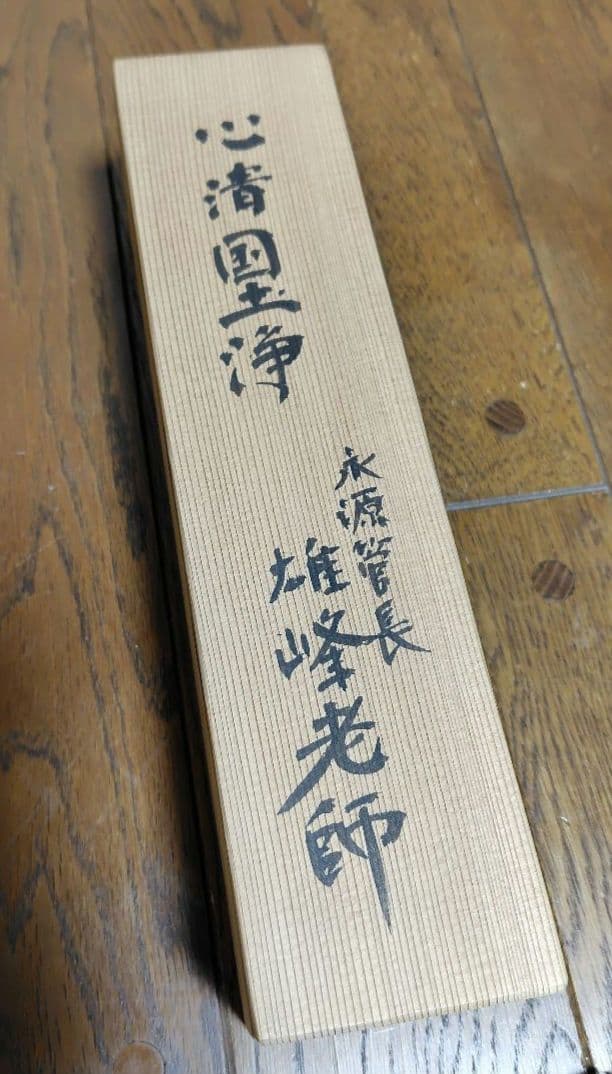 心清国土浄
永源管長
雄峰老師